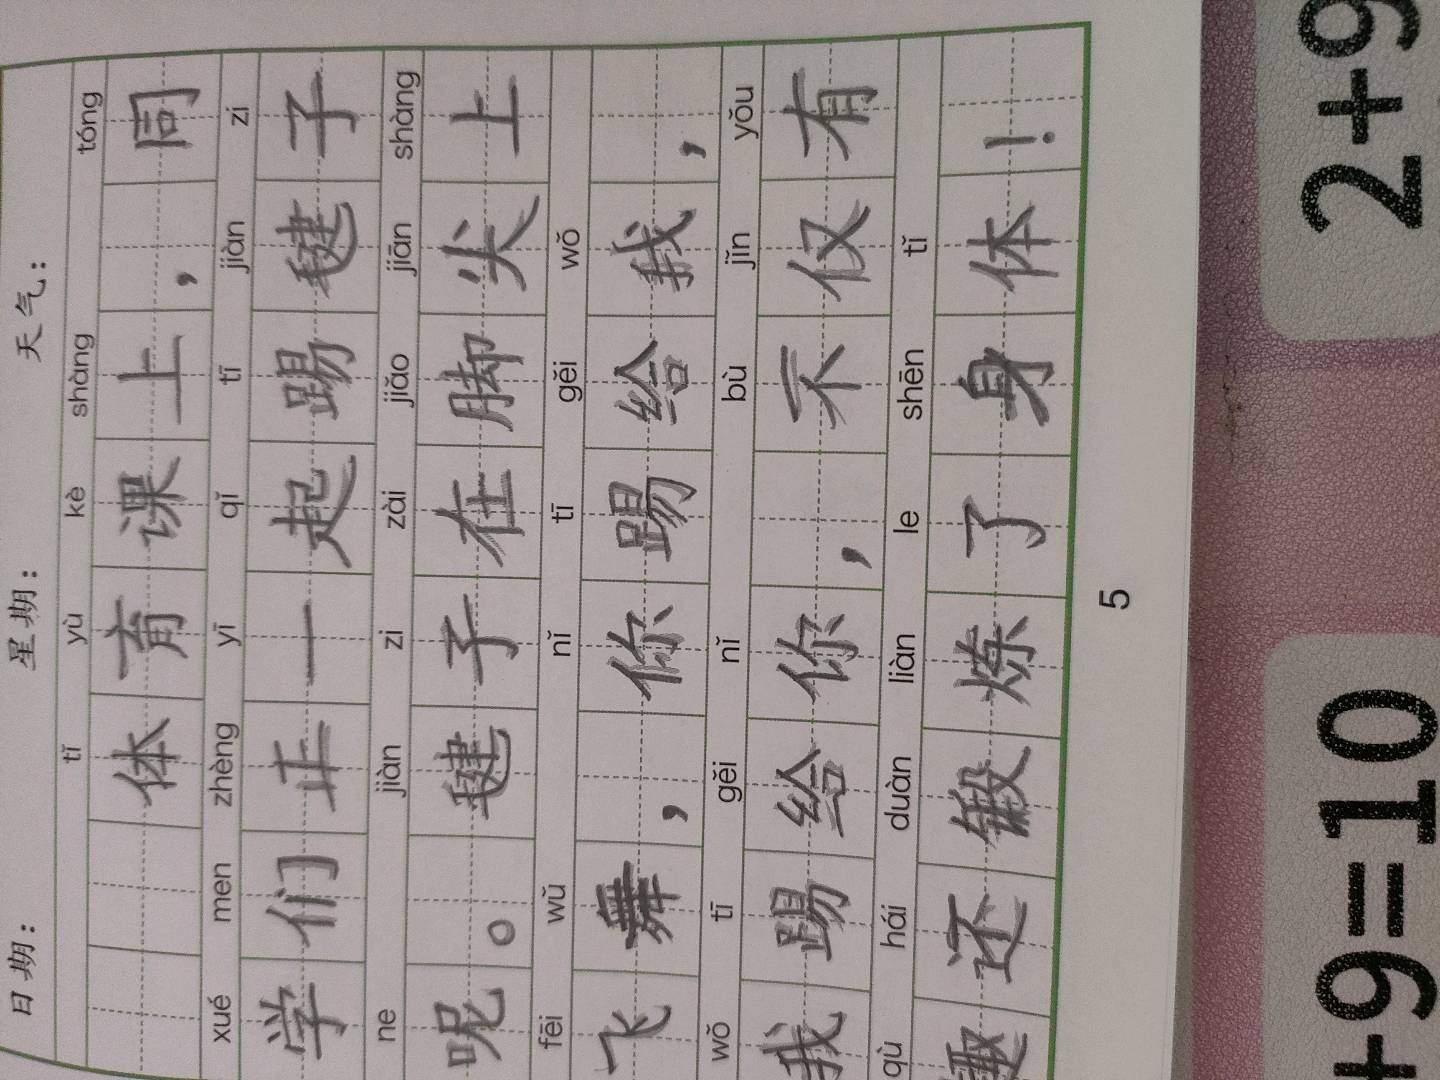 日期： 星期： 天气：
tǐ yù kè shàng tóng
体育课上，同
xué men zhèng yī qǐ tī jiàn zi
学们正一起踢毽子
ne jiàn zi zài jiǎo jiān shàng
呢。毽子在脚尖上
fēi wǔ nǐ tī gěi wǒ
飞舞，你踢给我，
wǒ tī gěi nǐ bù jǐn yǒu
我踢给你，不仅有
qù hái duàn liàn le shēn tǐ
趣还锻炼了身体！
5
+9=10 2+9